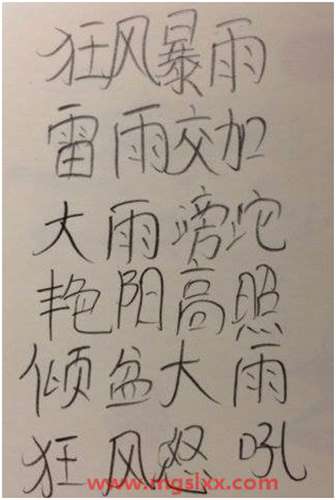 狂风暴雨
雷雨交加
大雨滂沱
艳阳高照
倾盆大雨
狂风怒吼
www.mgslxx.com